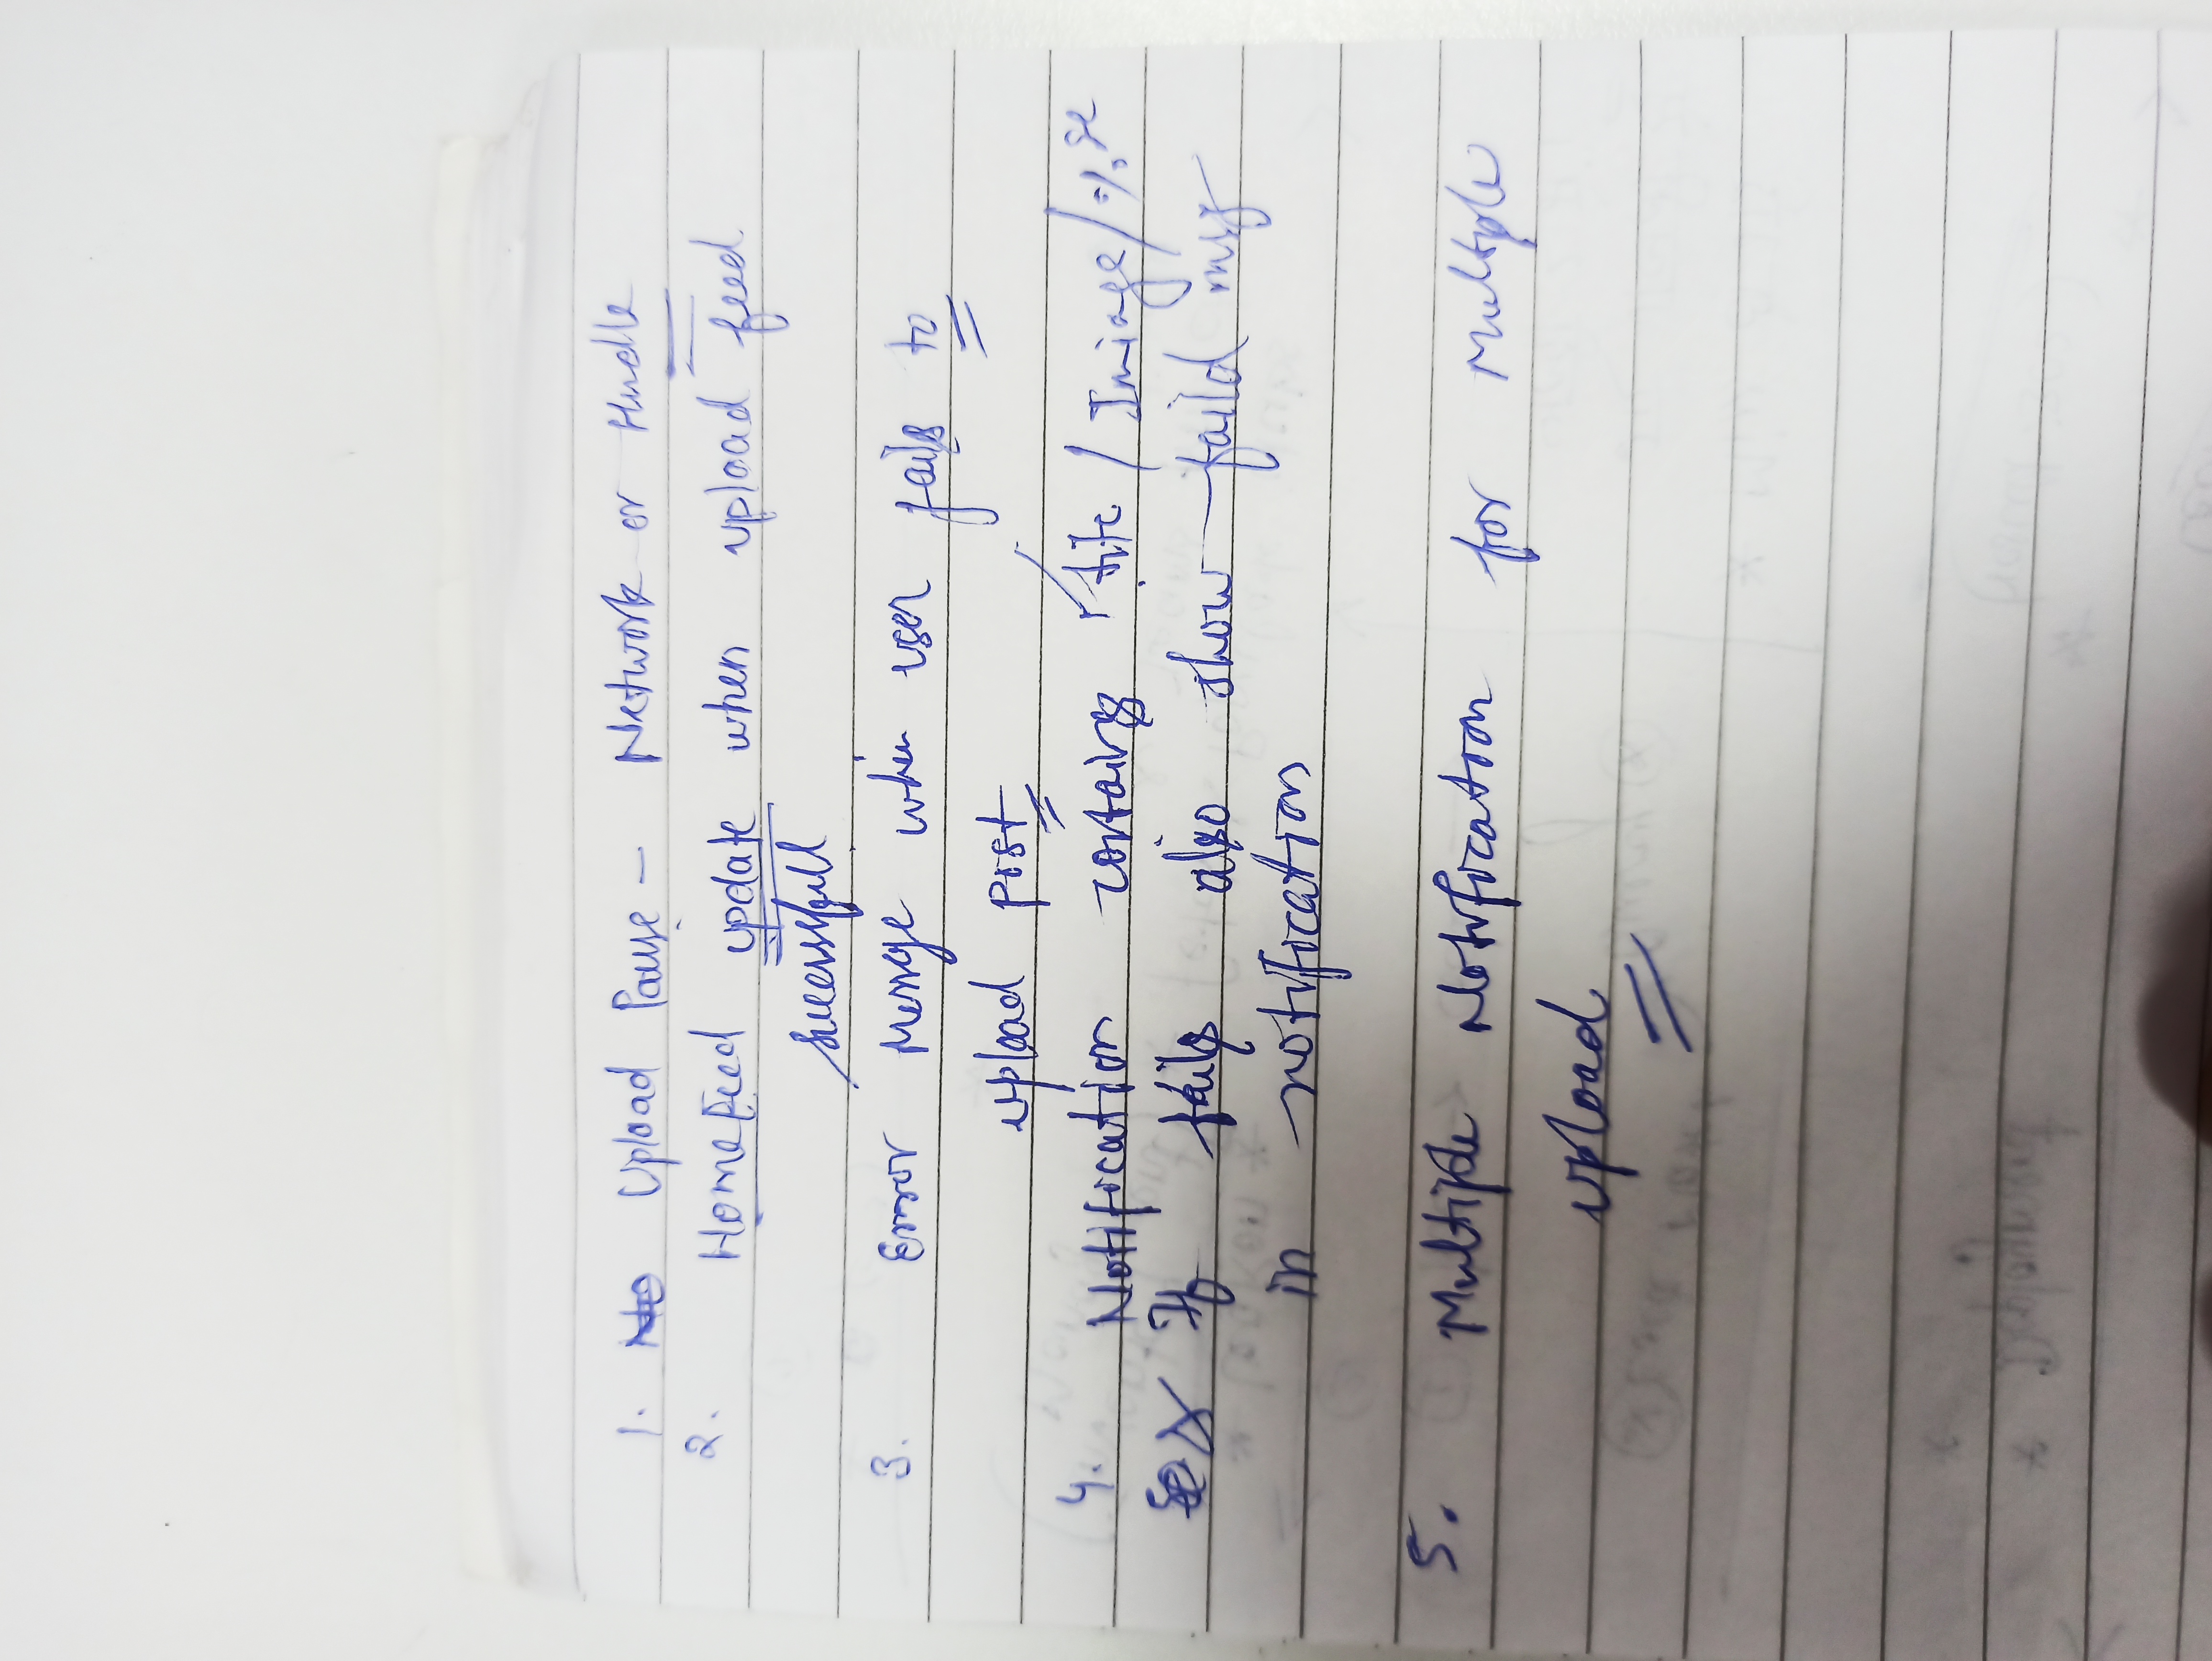 1. Upload Pause - Network or Hudle
2. HomeFeed update when upload feed
successfull
3. Error Messge when user fails to
upload post
4. Notification contains title / Imiage / %se
If fails also show faild msg
in notification
5. Multiple Notification for Multiple
upload